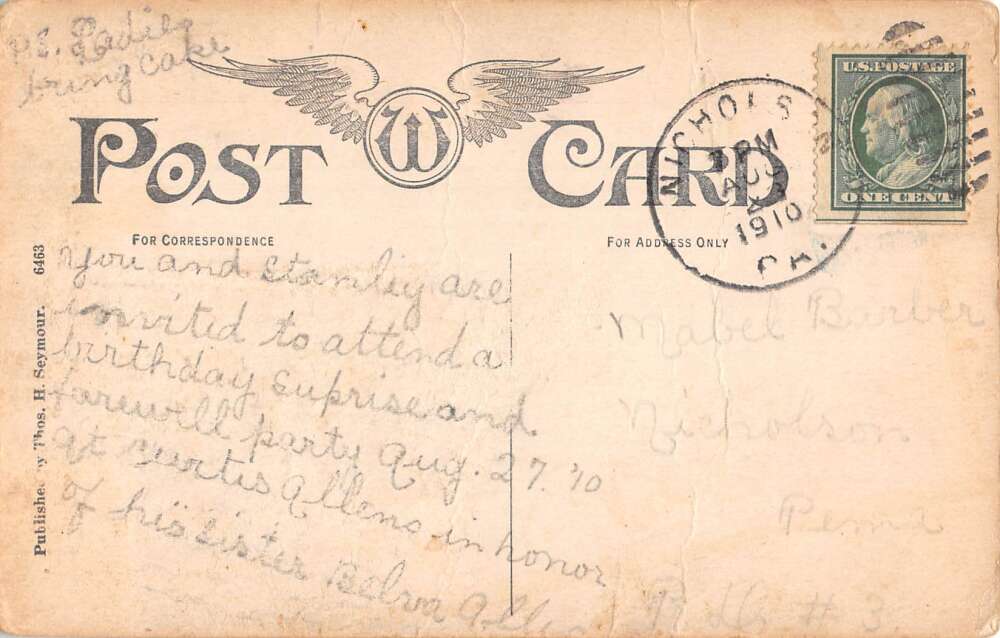 P.S. Ladies
bring cake
POST CARD
U.S. POSTAGE
ONE CENT
NICHOLSON
PM
1910
PA.
FOR CORRESPONDENCE
FOR ADDRESS ONLY
You and Stanley are
invited to attend a
birthday suprise and
farewell party Aug. 27. '10
at Curtis Allens in honor
of his sister Belva Allen
Mabel
Nicholson
Penna
#3
Published by Thos. H. Seymour. 6463